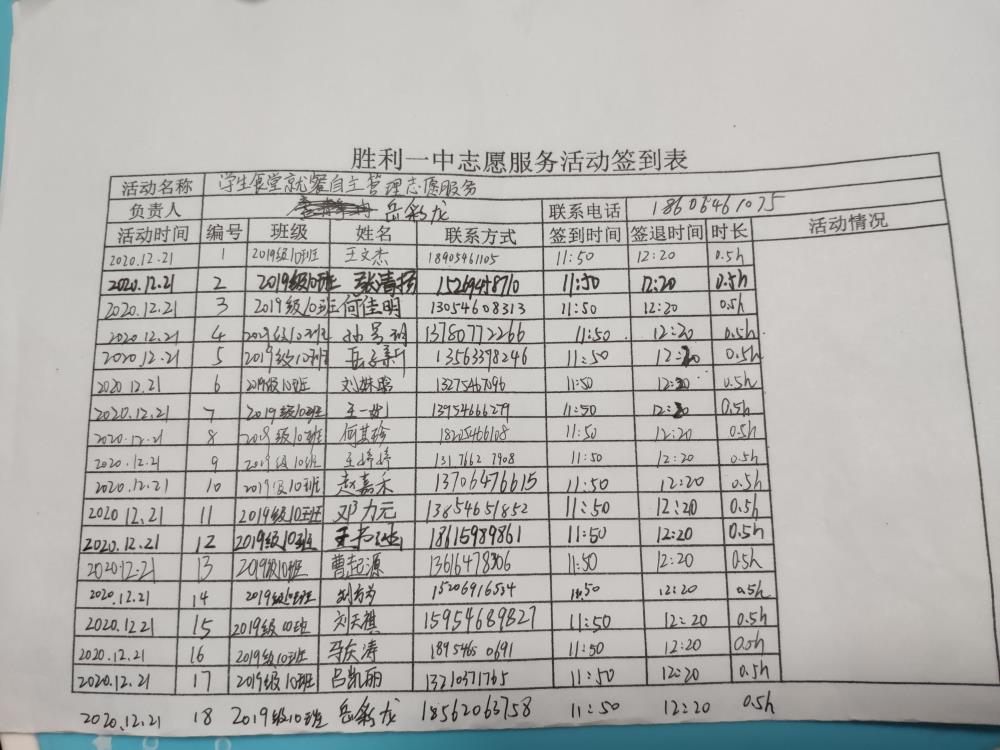 胜利一中志愿服务活动签到表
活动名称 学生食堂就餐自主管理志愿服务
负责人 岳彩龙 联系电话 18606461075
活动时间 编号 班级 姓名 联系方式 签到时间 签退时间 时长 活动情况
2020.12.21 1 2019级10班 王文杰 18905461105 11:50 12:20 0.5h
2020.12.21 2 2019级10班 张清扬 15269458710 11:50 12:20 0.5h
2020.12.21 3 2019级10班 何佳明 13054608313 11:50 12:20 0.5h
2020.12.21 4 2019级10班 13780772266 11:50 12:20 0.5h
2020.12.21 5 2019级10班 13563398246 11:50 12:20 0.5h
2020.12.21 6 2019级10班 13275467096 11:50 12:20 0.5h
2020.12.21 7 2019级10班 13954666279 11:50 12:20 0.5h
2020.12.21 8 2019级10班 何其珍 18205466108 11:50 12:20 0.5h
2020.12.21 9 2019级10班 王婷婷 131 7662 7908 11:50 12:20 0.5h
2020.12.21 10 2019级10班 赵嘉禾 13706476615 11:50 12:20 0.5h
2020.12.21 11 2019级10班 邓力元 13854651852 11:50 12:20 0.5h
2020.12.21 12 2019级10班 18615989861 11:50 12:20 0.5h
2020.12.21 13 2019级10班 曹起源 13616478306 11:50 12:20 0.5h
2020.12.21 14 2019级10班 15206916534 11:50 12:20 0.5h
2020.12.21 15 2019级10班 刘天祺 15954689827 11:50 12:20 0.5h
2020.12.21 16 2019级10班 马庆涛 1895460691 11:50 12:20 0.5h
2020.12.21 17 2019级10班 吕凯丽 13210371765 11:50 12:20 0.5h
2020.12.21 18 2019级10班 岳彩龙 18562063758 11:50 12:20 0.5h